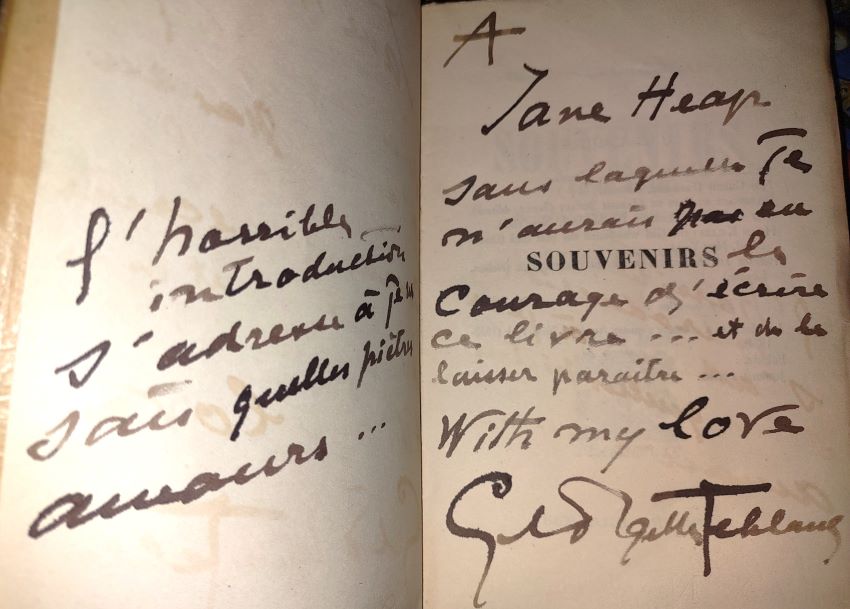 l'horrible
introduction
s'adresse à je ne
sais quelles piètres
amours ...
A
Jane Heap
sans laquelle je
n'aurais pas eu
SOUVENIRS le
courage d'écrire
ce livre ... et de le
laisser paraître ...
With my love
Georgette Leblanc